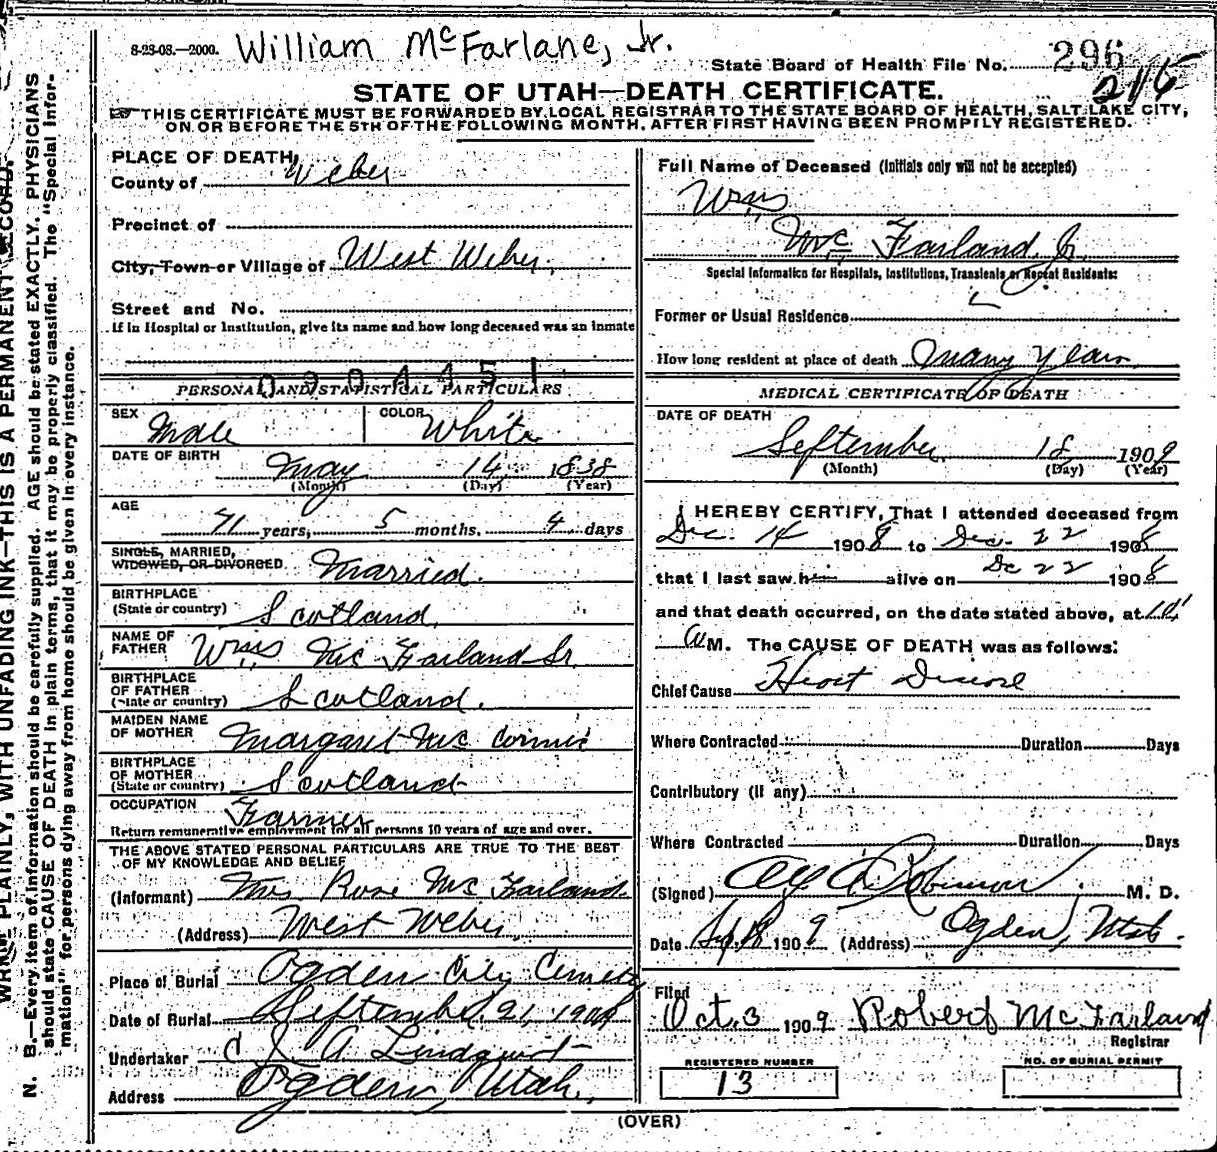 8-23-08.—2000. William McFarlane, Jr.
State Board of Health File No. 296
216
STATE OF UTAH—DEATH CERTIFICATE.
THIS CERTIFICATE MUST BE FORWARDED BY LOCAL REGISTRAR TO THE STATE BOARD OF HEALTH, SALT LAKE CITY,
ON OR BEFORE THE 5TH OF THE FOLLOWING MONTH, AFTER FIRST HAVING BEEN PROMPTLY REGISTERED.
WRITE PLAINLY, WITH UNFADING INK—THIS IS A PERMANENT RECORD.
N. B.—Every item of information should be carefully supplied. AGE should be stated EXACTLY. PHYSICIANS
should state CAUSE OF DEATH in plain terms, that it may be properly classified. The "Special Infor-
mation" for persons dying away from home should be given in every instance.
PLACE OF DEATH,
County of Weber
Precinct of
City, Town or Village of West Weber.
Street and No.
If in Hospital or Institution, give its name and how long deceased was an inmate
PERSONAL AND STATISTICAL PARTICULARS
SEX Male COLOR White
DATE OF BIRTH May 14 1838
(Month) (Day) (Year)
AGE
71 years, 5 months, 4 days
SINGLE, MARRIED,
WIDOWED, OR DIVORCED. Married.
BIRTHPLACE
(State or country) Scotland.
NAME OF
FATHER Wm Mc Farland Sr
BIRTHPLACE
OF FATHER
(State or country) Scotland.
MAIDEN NAME
OF MOTHER Margaret Mc Cormic
BIRTHPLACE
OF MOTHER
(State or country) Scotland
OCCUPATION Farmer
Return remunerative employment for all persons 10 years of age and over.
THE ABOVE STATED PERSONAL PARTICULARS ARE TRUE TO THE BEST
OF MY KNOWLEDGE AND BELIEF
(Informant) Mrs Rose Mc Farland
(Address) West Weber.
Place of Burial Ogden City Cemetery
Date of Burial September 21, 1909
Undertaker C J A Lindquist
Address Ogden, Utah.
Full Name of Deceased (Initials only will not be accepted)
Wm
Mc Farland Jr
Special Information for Hospitals, Institutions, Transients or Recent Residents:
Former or Usual Residence
How long resident at place of death Many Years
MEDICAL CERTIFICATE OF DEATH
DATE OF DEATH
September 18 1909
(Month) (Day) (Year)
I HEREBY CERTIFY, That I attended deceased from
Dec. 14 1908 to Dec. 22 1908
that I last saw him alive on Dec 22 1908
and that death occurred, on the date stated above, at
A M. The CAUSE OF DEATH was as follows:
Chief Cause Heart Disease
Where Contracted Duration Days
Contributory (if any)
Where Contracted Duration Days
(Signed) Robinson M. D.
Date Sep. 18 1909 (Address) Ogden, Utah.
Filed
Oct. 3 1909 Robert McFarland
Registrar
REGISTERED NUMBER
13
NO. OF BURIAL PERMIT
(OVER)